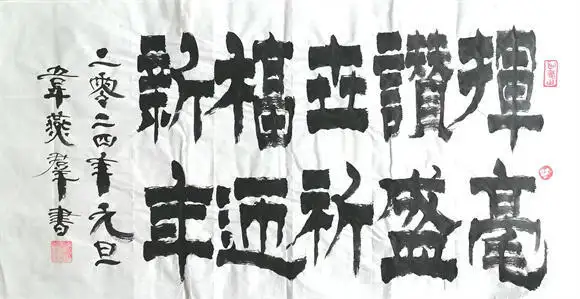 揮毫
讚盛
世祈
福迎
新年
二零二四年元旦
韋燕羣書